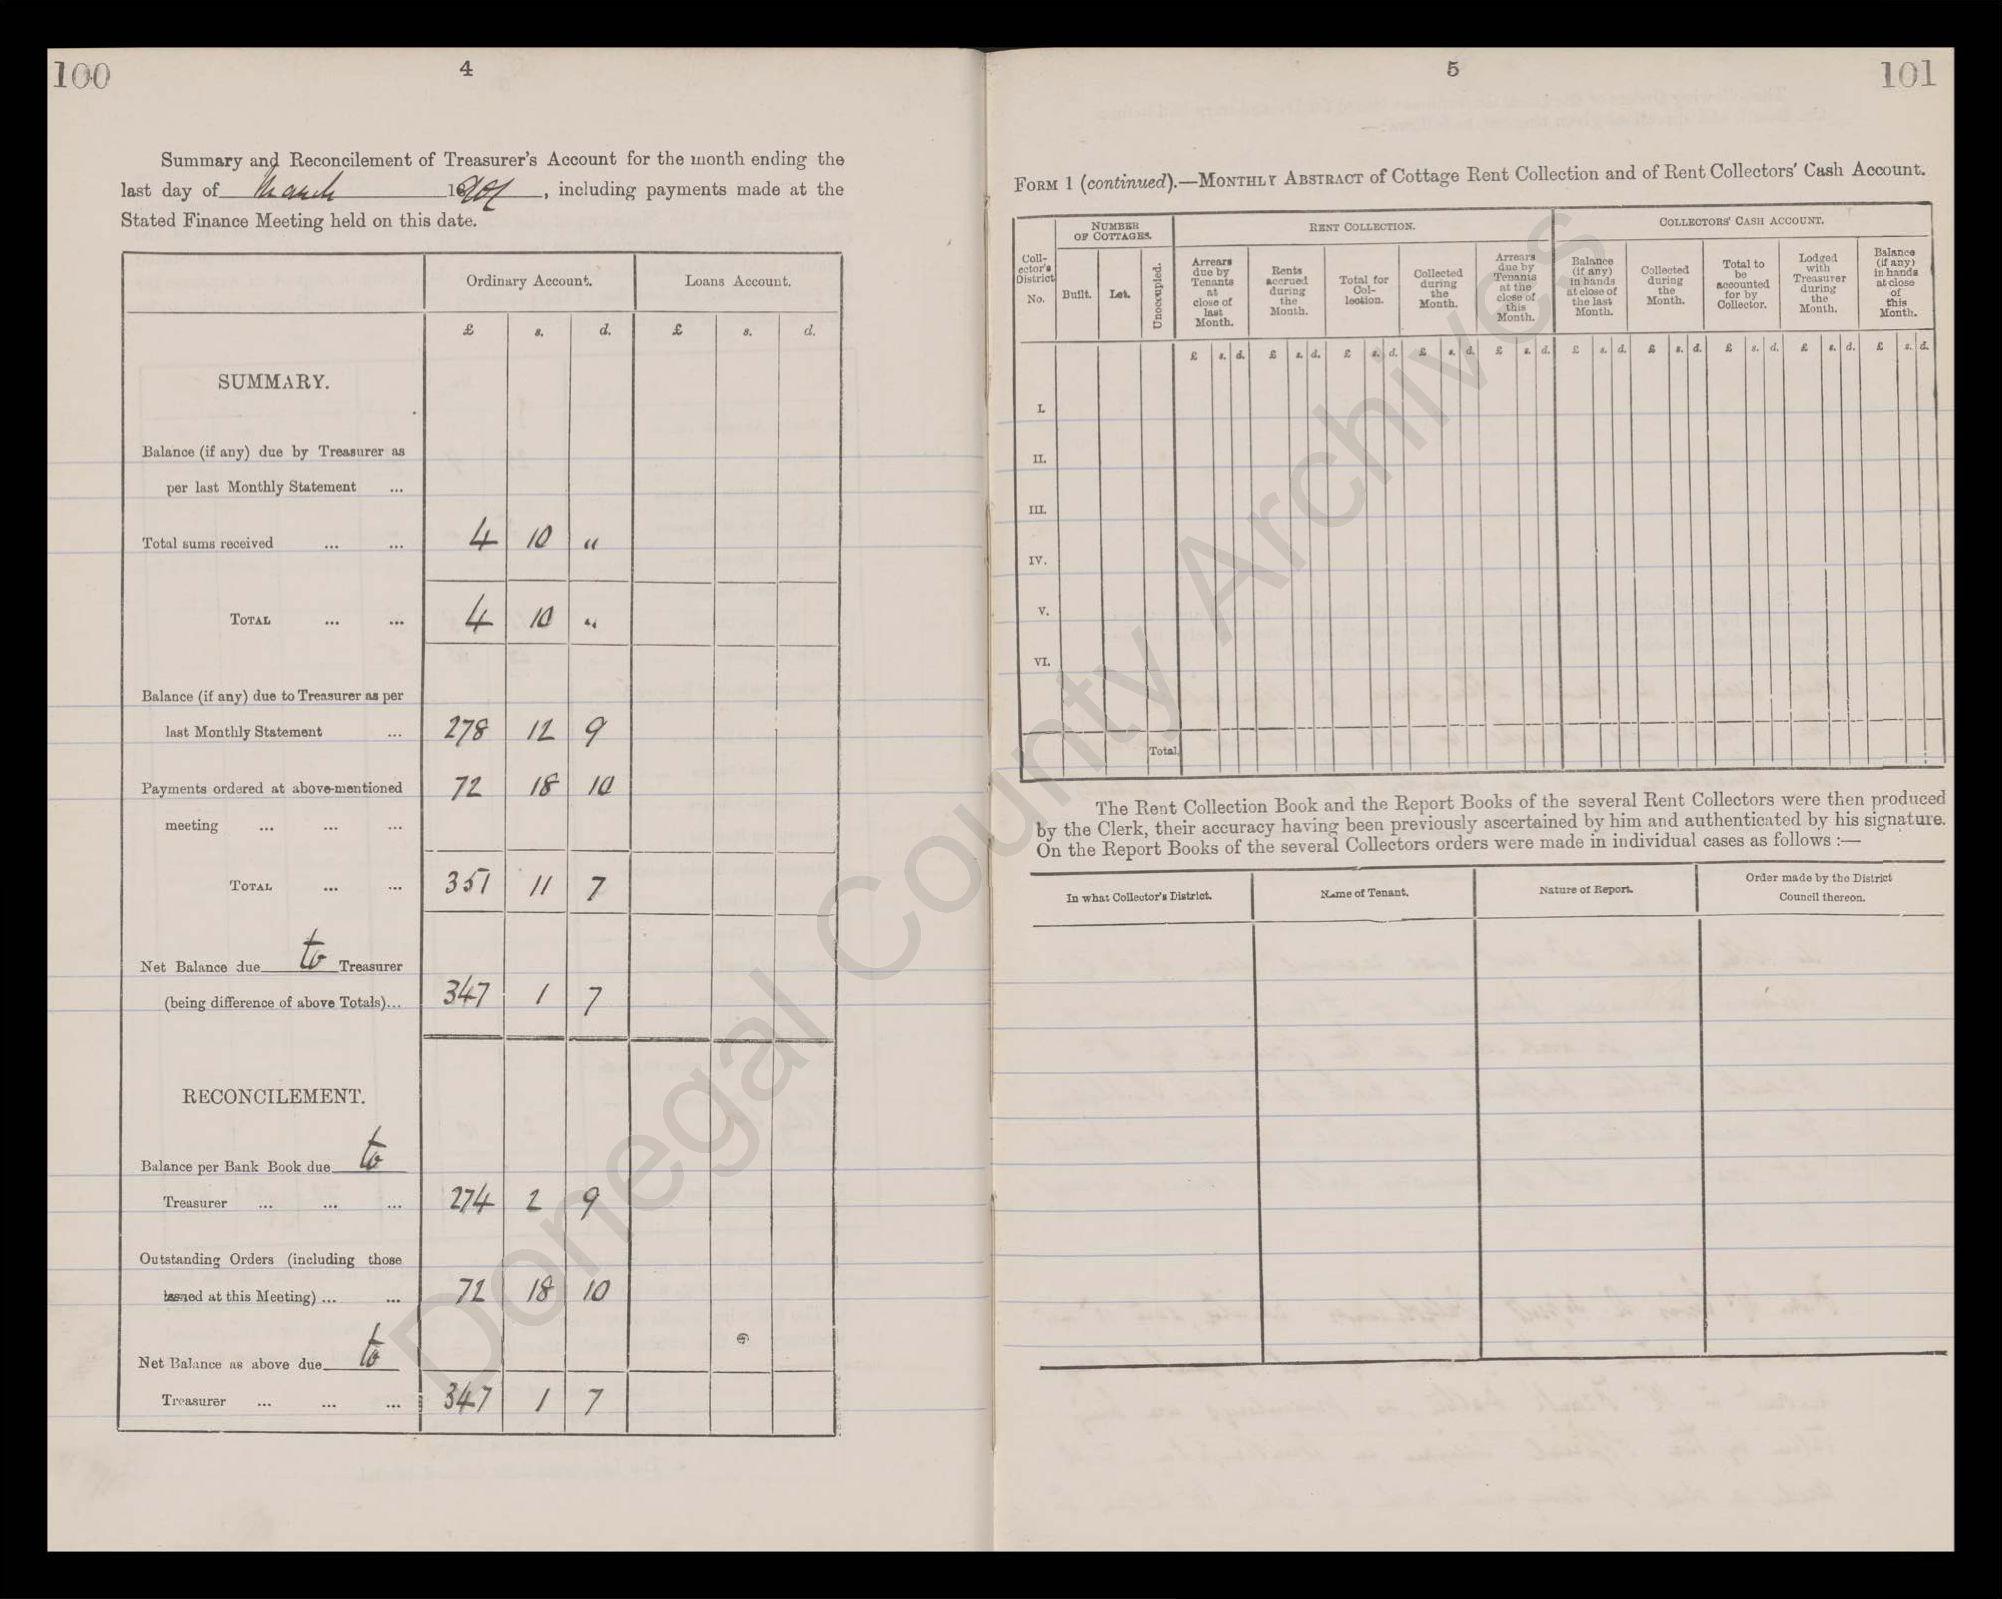 100
4
Summary and Reconcilement of Treasurer's Account for the month ending the
last day of March 1901, including payments made at the
Stated Finance Meeting held on this date.
Ordinary Account. Loans Account.
£ s. d. £ s. d.
SUMMARY.
Balance (if any) due by Treasurer as
per last Monthly Statement ...
Total sums received ... ... 4 10 "
TOTAL ... ... 4 10 "
Balance (if any) due to Treasurer as per
last Monthly Statement ... 278 12 9
Payments ordered at above-mentioned 72 18 10
meeting ... ... ...
TOTAL ... ... 351 11 7
Net Balance due to Treasurer
(being difference of above Totals)... 347 1 7
RECONCILEMENT.
Balance per Bank Book due to
Treasurer ... ... ... 274 2 9
Outstanding Orders (including those
issued at this Meeting) ... ... 72 18 10
Net Balance as above due to
Treasurer ... ... ... 347 1 7
5
101
FORM 1 (continued).—MONTHLY ABSTRACT of Cottage Rent Collection and of Rent Collectors' Cash Account.
Coll-
ector's
District
No.
NUMBER
OF COTTAGES.
Built. Let. Unoccupied.
RENT COLLECTION.
Arrears
due by
Tenants
at
close of
last
Month.
Rents
accrued
during
the
Month.
Total for
Col-
lection.
Collected
during
the
Month.
Arrears
due by
Tenants
at the
close of
this
Month.
COLLECTORS' CASH ACCOUNT.
Balance
(if any)
in hands
at close of
the last
Month.
Collected
during
the
Month.
Total to
be
accounted
for by
Collector.
Lodged
with
Treasurer
during
the
Month.
Balance
(if any)
in hands
at close
of
this
Month.
£ s. d. £ s. d. £ s. d. £ s. d. £ s. d. £ s. d. £ s. d. £ s. d. £ s. d. £ s. d.
I.
II.
III.
IV.
V.
VI.
Total
The Rent Collection Book and the Report Books of the several Rent Collectors were then produced
by the Clerk, their accuracy having been previously ascertained by him and authenticated by his signature.
On the Report Books of the several Collectors orders were made in individual cases as follows :—
In what Collector's District. Name of Tenant. Nature of Report. Order made by the District
Council thereon.
Donegal County Archives